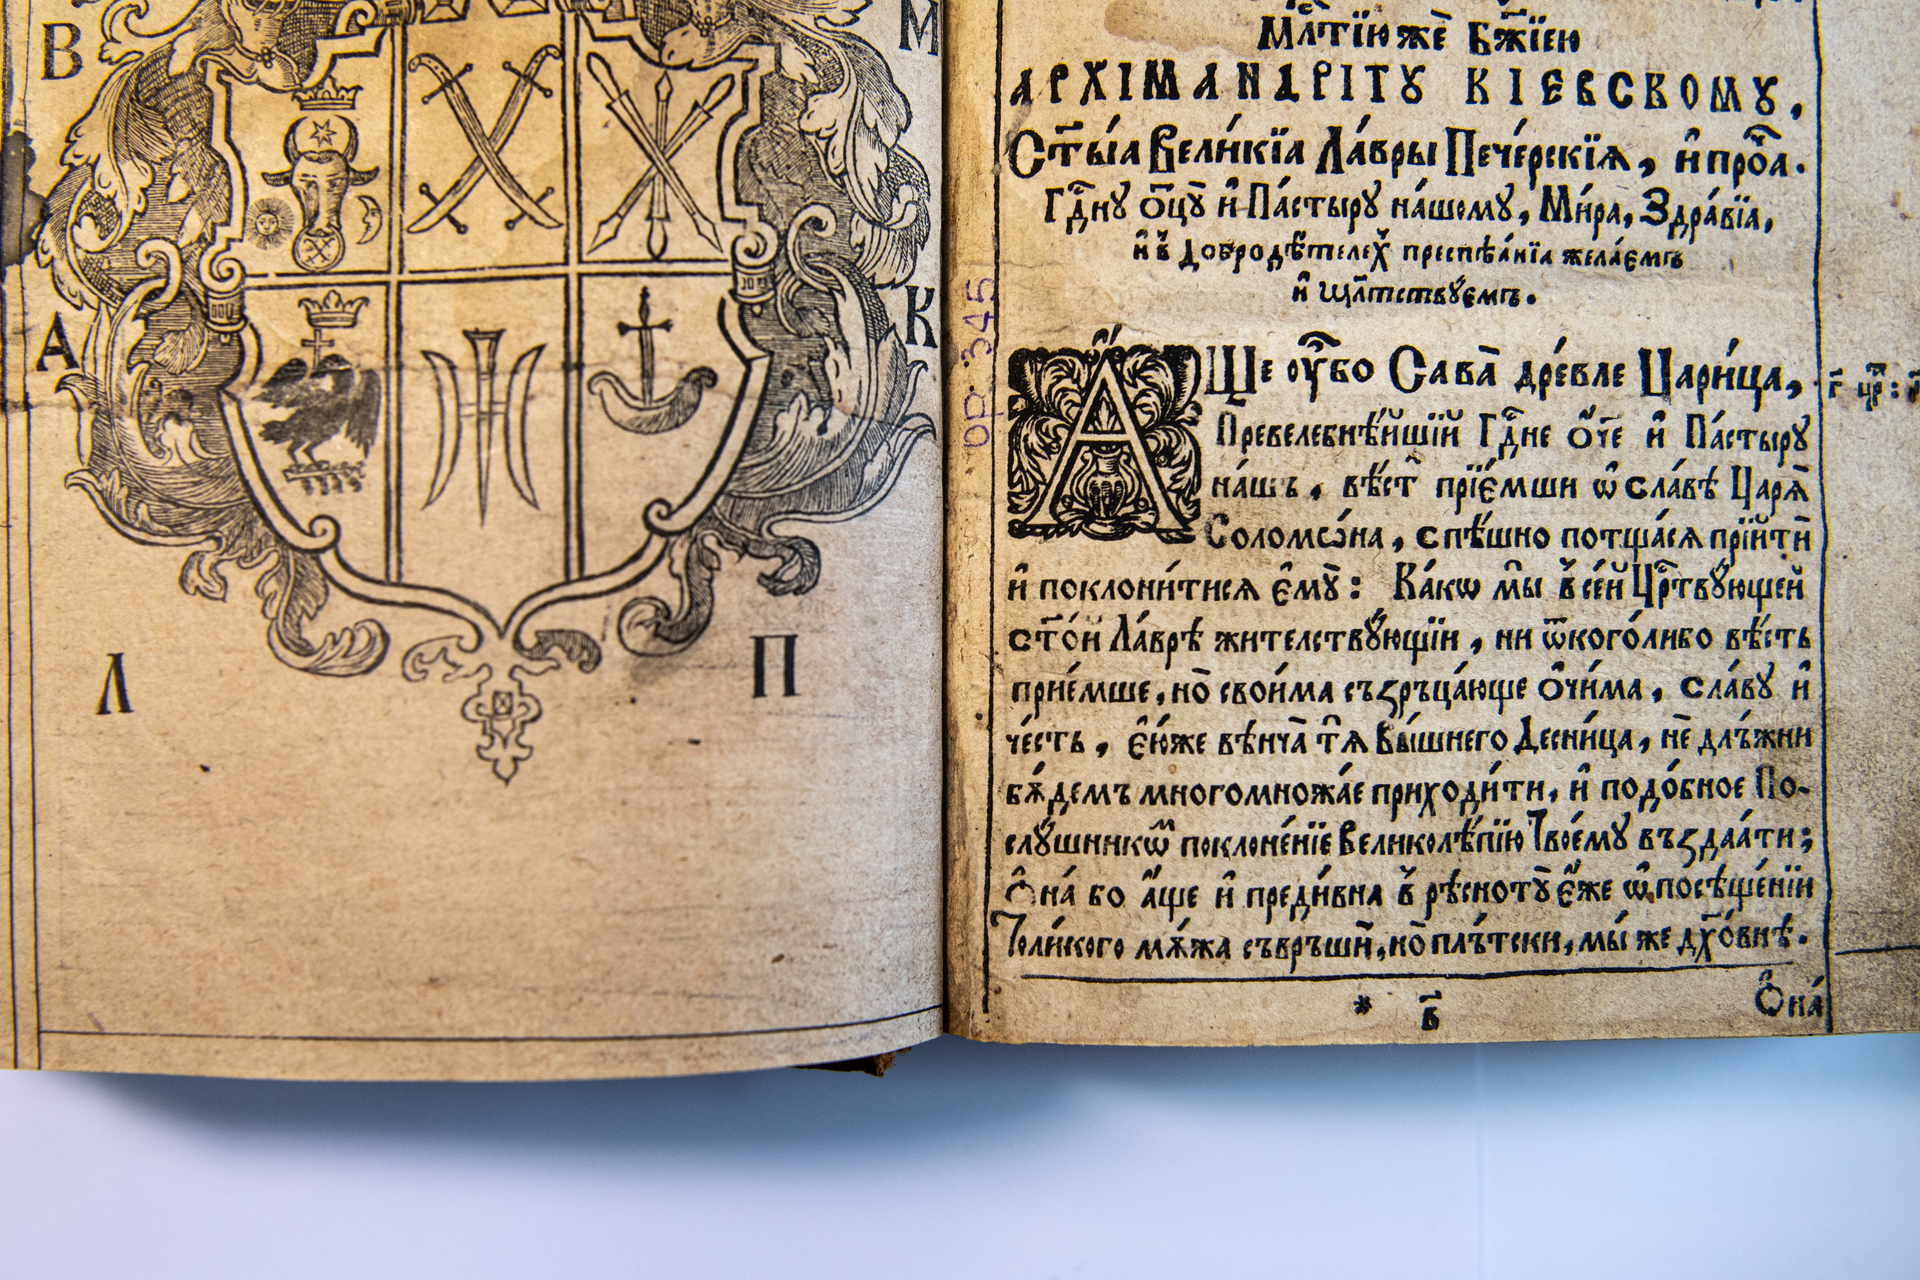 В
М
А
К
Л
П
Мл҃тїю жѐ Бж҃їею
АРХІМАНДРІТУ КІЕВСКОМУ,
Ст҃ы́ѧ Вели́кїѧ Ла́вры Пече́рскїѧ, и҆ про́ꙋа.
Гд҃нꙋ Ѻ҆ц҃ꙋ̀ и҆ Па́стырꙋ на́шомꙋ, Ми́ра, Здра́вїѧ,
и҆ в̾ Добродѣ́телех̾ преспѣѧ́нїѧ жела́емъ
и҆ ЩАще оу҆́бо Сава̀ дре́вле Цари́ца,
г҃ цр҃:
Превелебнѣ́йшїй Гд҃не Ѻ҆́ч҃е и҆ Па́стырꙋ
на́шъ, вѣ́ст̾ прїе́мши ѡ҆ сла́вѣ Царѧ̀
Соломѡ́на, спѣ́шно потща́сѧ прїйтѝ
и҆ поклони́тисѧ е҆мꙋ̀: Ка́кѡ мы̀ в̾ се́й Цр҃твꙋ́ющей
ст҃о́й Ла́врѣ жителствꙋ́ющїи, ни ѿ кого́либо вѣ́сть
прие́мше, но̀ свои́ма съзръца́юще ѻ҆чи́ма, сла́вꙋ и҆
че́сть, е҆́юже вѣнча̀ тѧ̀ Вы́шнего Десни́ца, нѐ длъ́жни
бѫ́демъ многомножа́е приходи́ти, и҆ подо́бное По-
слꙋ́шникѡм̾ поклоне́нїе Великолѣ́пїю Твоемꙋ̀ въздаѧ́ти;
Ѻ҆на́ бо а҆́ще и҆ преди́вна в̾ рѣснотꙋ̀ е҆́же ѡ҆ посѣще́нїи
Толи́кого мѫ́жа съвръшѝ, но̀ плъ́тски, мы́ же дх҃о́внѣ.
* в҃
Ѻ҆на́
ор. 345